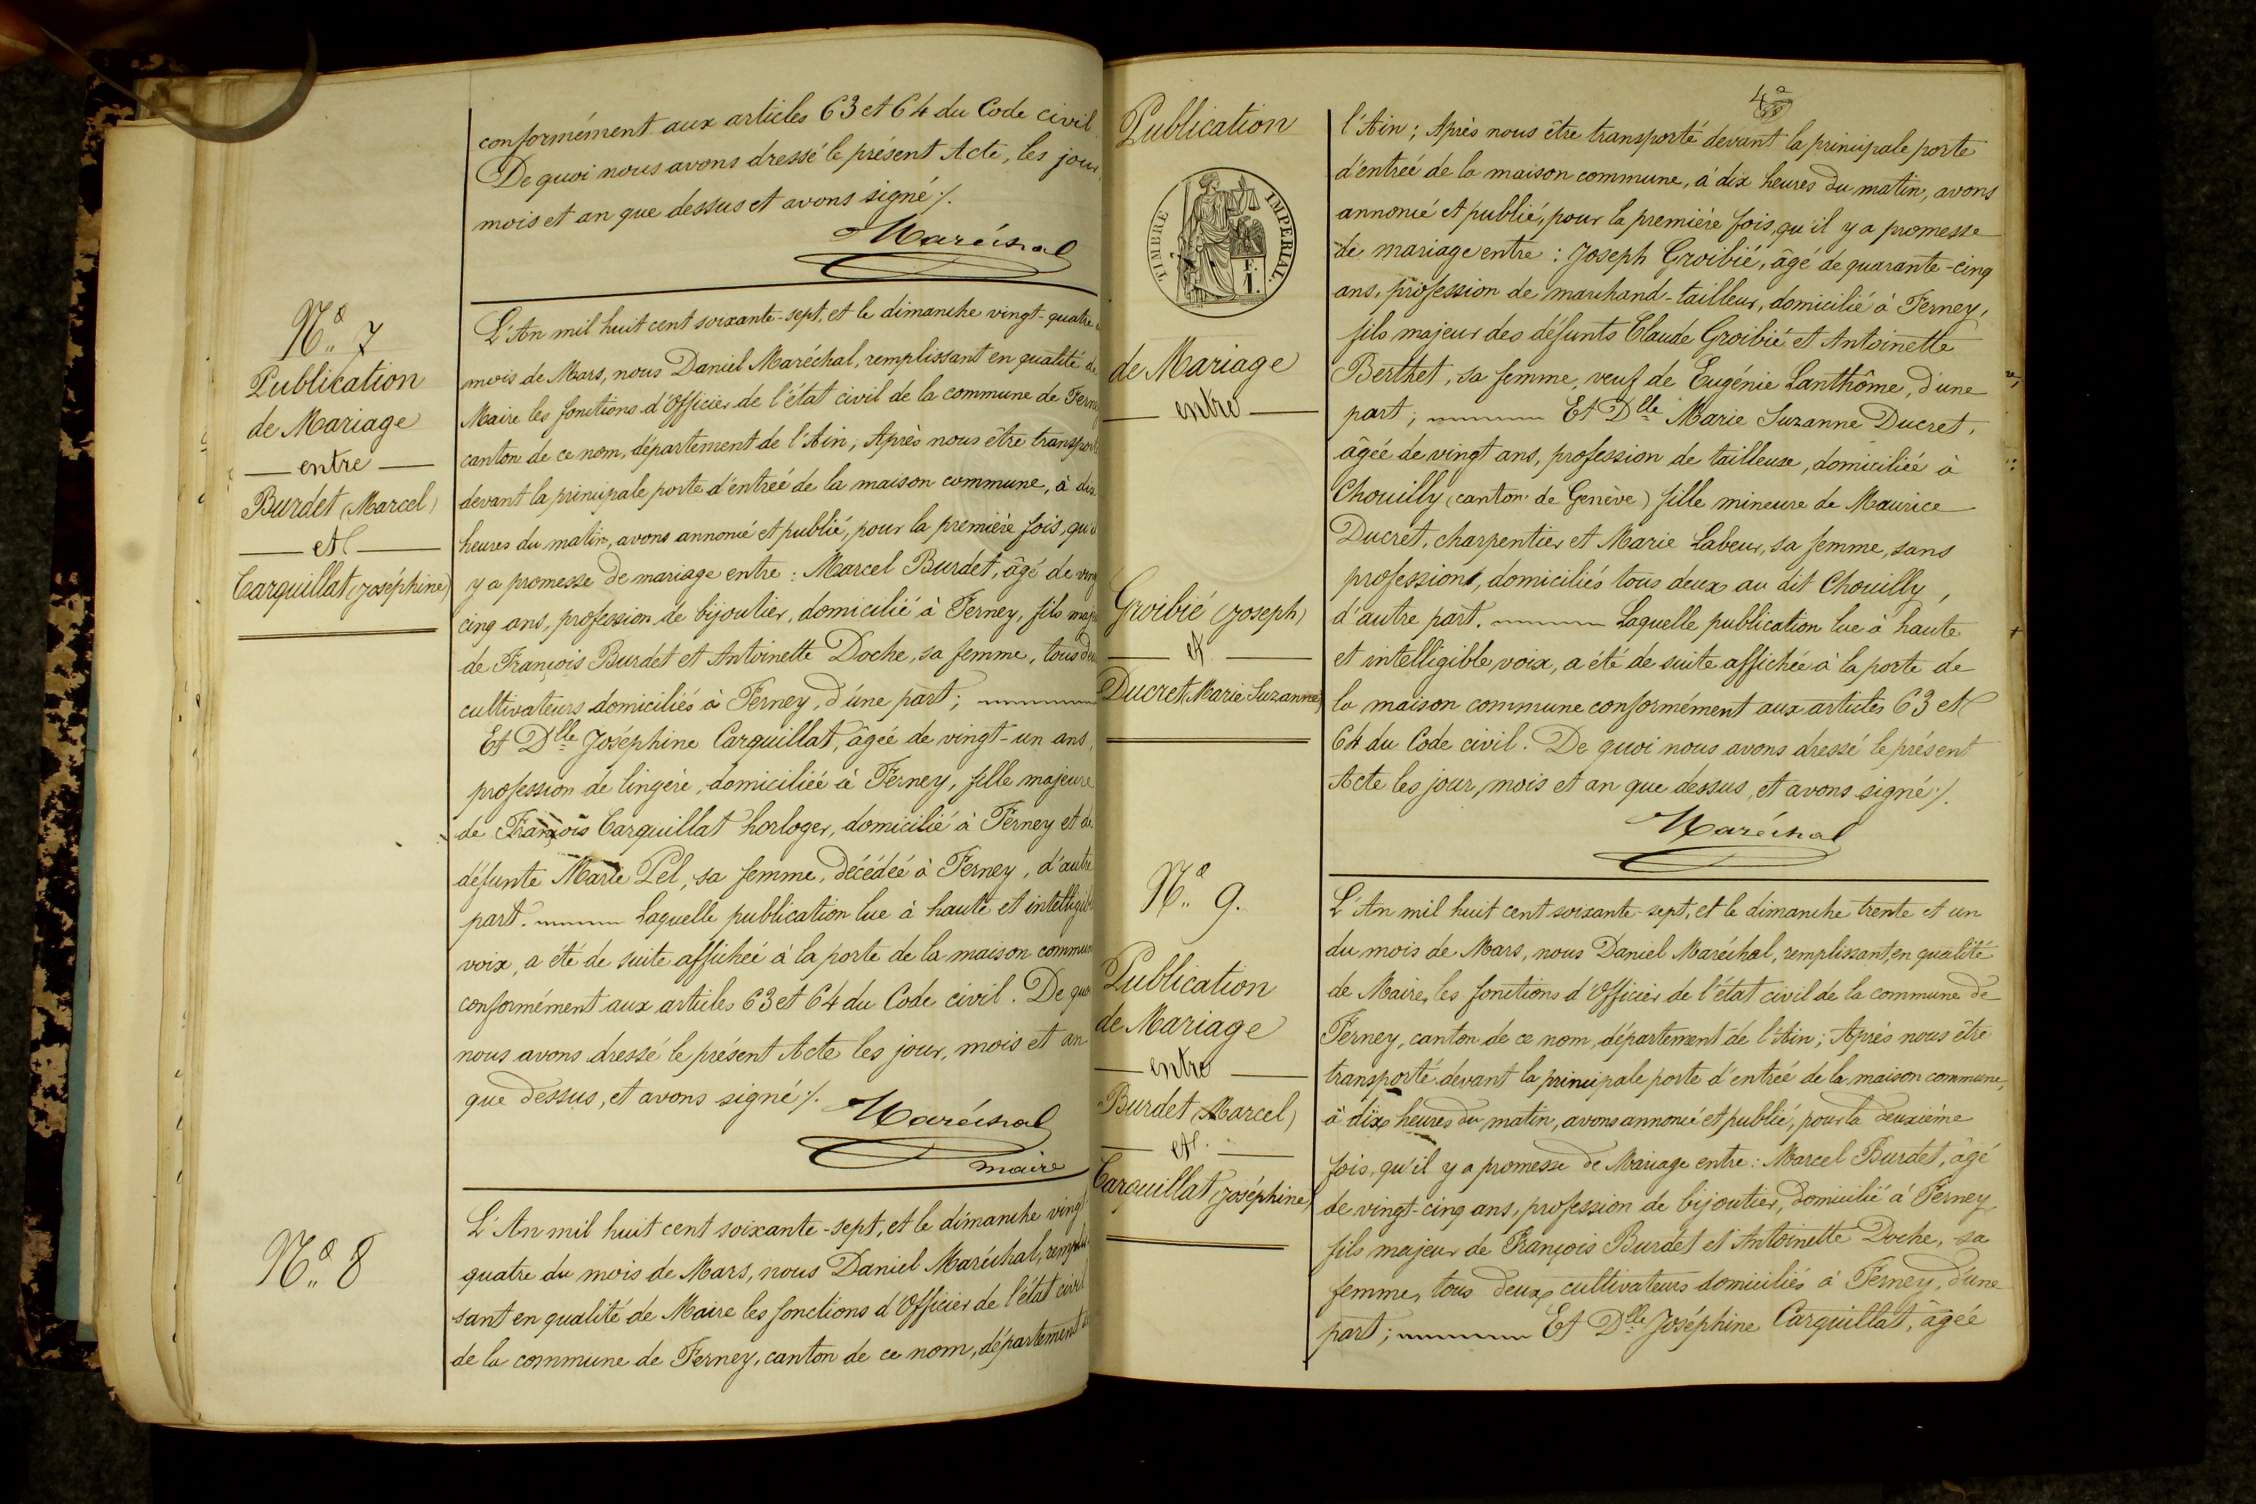 conformément aux articles 63 et 64 du Code civil.
De quoi nous avons dressé le présent Acte, les jour,
mois et an que dessus et avons signé ./.
Maréchal
No 7
Publication
de Mariage
entre
Burdet (Marcel)
et
Carquillat (Joséphine)
L'An mil huit cent soixante-sept, et le dimanche vingt-quatre
mois de Mars, nous Daniel Maréchal, remplissant en qualité de
Maire les fonctions d'Officier de l'état civil de la commune de Ferney
canton de ce nom, département de l'Ain; Après nous être transporté
devant la principale porte d'entrée de la maison commune, à dix
heures du matin, avons annoncé et publié, pour la première fois, qu'il
y a promesse de mariage entre : Marcel Burdet, âgé de vingt
cinq ans, profession de bijoutier, domicilié à Ferney, fils majeur
de François Burdet et Antoinette Doche, sa femme, tous deux
cultivateurs domiciliés à Ferney, d'une part;
Et Dlle Joséphine Carquillat, âgée de vingt-un ans,
profession de lingère, domiciliée à Ferney, fille majeure
de François Carquillat horloger, domicilié à Ferney et de
défunte Marie Pel, sa femme, décédée à Ferney, d'autre
part. Laquelle publication lue à haute et intelligible
voix, a été de suite affichée à la porte de la maison commune
conformément aux articles 63 et 64 du Code civil. De quoi
nous avons dressé le présent Acte les jour, mois et an
que dessus, et avons signé ./.
Maréchal
maire
No 8
L'An mil huit cent soixante-sept, et le dimanche vingt
quatre du mois de Mars, nous Daniel Maréchal, remplis
sant en qualité de Maire les fonctions d'Officier de l'état civil
de la commune de Ferney, canton de ce nom, département de
Publication
TIMBRE IMPERIAL
de Mariage
entre
Groibié (Joseph)
et
Ducret, Marie Suzanne)
l'Ain; Après nous être transporté devant la principale porte
d'entrée de la maison commune, à dix heures du matin, avons
annoncé et publié, pour la première fois, qu'il y a promesse
de mariage entre : Joseph Groibié, âgé de quarante-cinq
ans, profession de marchand-tailleur, domicilié à Ferney,
fils majeur des défunts Claude Groibié et Antoinette
Berthet, sa femme, veuf de Eugénie Lanthôme, d'une
part; Et Dlle Marie Suzanne Ducret,
âgée de vingt ans, profession de tailleuse, domiciliée à
Chouilly (canton de Genève) fille mineure de Maurice
Ducret, charpentier et Marie Labeur, sa femme, sans
profession, domiciliés tous deux au dit Chouilly,
d'autre part. Laquelle publication lue à haute
et intelligible voix, a été de suite affichée à la porte de
la maison commune conformément aux articles 63 et
64 du Code civil. De quoi nous avons dressé le présent
Acte les jour, mois et an que dessus, et avons signé ./.
Maréchal
No 9.
Publication
de Mariage
entre
Burdet (Marcel)
et
Carquillat (Joséphine)
L'An mil huit cent soixante-sept, et le dimanche trente et un
du mois de Mars, nous Daniel Maréchal, remplissant, en qualité
de Maire, les fonctions d'Officier de l'état civil de la commune de
Ferney, canton de ce nom, département de l'Ain; Après nous être
transporté devant la principale porte d'entrée de la maison commune,
à dix heures du matin, avons annoncé et publié, pour la deuxième
fois, qu'il y a promesse de Mariage entre : Marcel Burdet, âgé
de vingt-cinq ans, profession de bijoutier, domicilié à Ferney,
fils majeur de François Burdet et Antoinette Doche, sa
femme, tous deux cultivateurs domiciliés à Ferney, d'une
part; Et Dlle Joséphine Carquillat, âgée